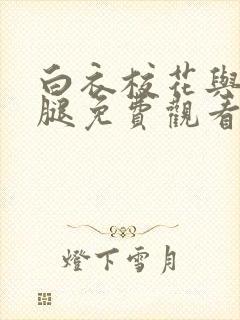 白衣校花與
腿免費觀看
燈下雪月